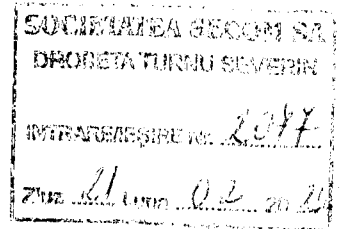 SOCIETATEA SECOM SA
DROBETA TURNU SEVERIN
INTRARE/IEŞIRE Nr. 2077
Ziua 21 Luna 02 20